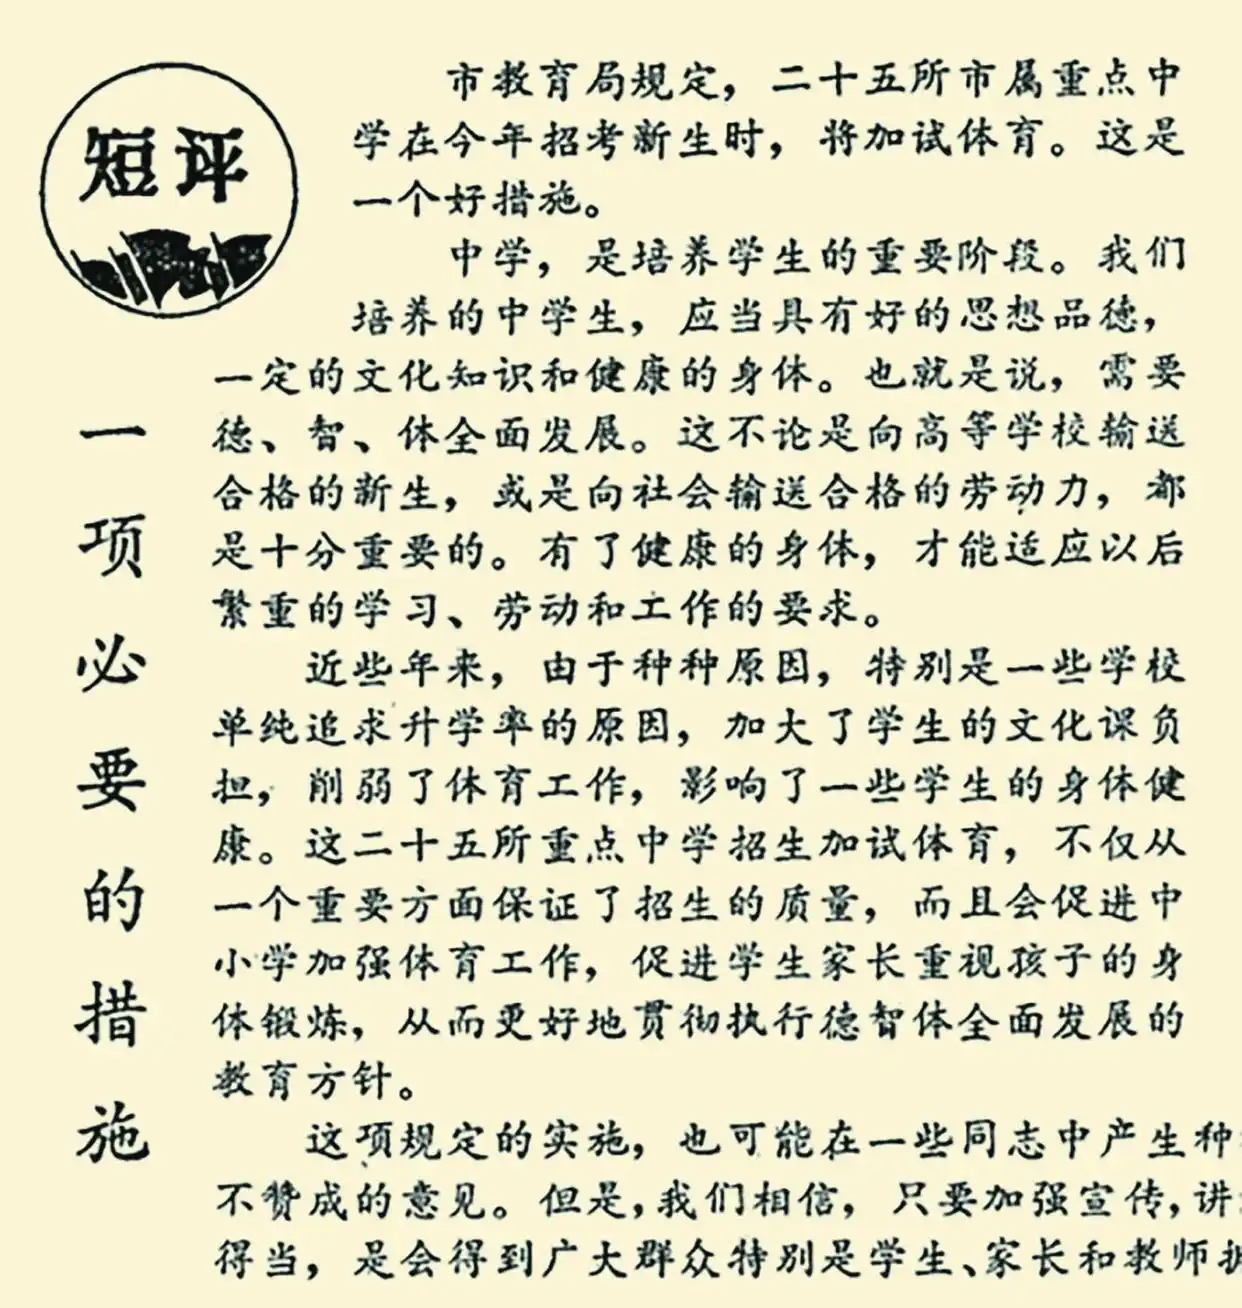 短评
一项必要的措施
市教育局规定，二十五所市属重点中
学在今年招考新生时，将加试体育。这是
一个好措施。
中学，是培养学生的重要阶段。我们
培养的中学生，应当具有好的思想品德，
一定的文化知识和健康的身体。也就是说，需要
德、智、体全面发展。这不论是向高等学校输送
合格的新生，或是向社会输送合格的劳动力，都
是十分重要的。有了健康的身体，才能适应以后
繁重的学习、劳动和工作的要求。
近些年来，由于种种原因，特别是一些学校
单纯追求升学率的原因，加大了学生的文化课负
担，削弱了体育工作，影响了一些学生的身体健
康。这二十五所重点中学招生加试体育，不仅从
一个重要方面保证了招生的质量，而且会促进中
小学加强体育工作，促进学生家长重视孩子的身
体锻炼，从而更好地贯彻执行德智体全面发展的
教育方针。
这项规定的实施，也可能在一些同志中产生种
不赞成的意见。但是，我们相信，只要加强宣传，讲
得当，是会得到广大群众特别是学生、家长和教师